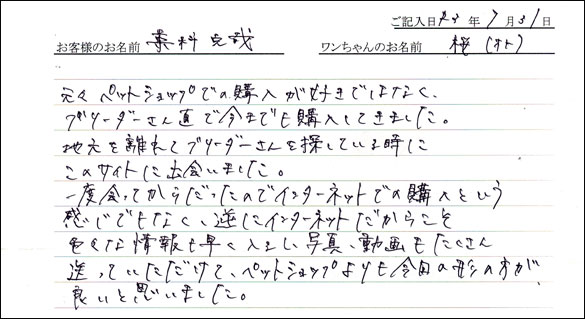 ご記入日 H23 年 7 月 31 日
お客様のお名前 藁科 克哉 ワンちゃんのお名前 桜(オト)
元々ペットショップでの購入が好きではなく、
ブリーダーさん直で今までも購入してきました。
地元を離れてブリーダーさんを探している時に
このサイトに出会いました。
一度会ってからだったのでインターネットでの購入という
感じでもなく、逆にインターネットだからこそ
色々な情報も早く入るし、写真、動画もたくさん
送っていただけて、ペットショップよりも今回の形の方が
良いと思いました。